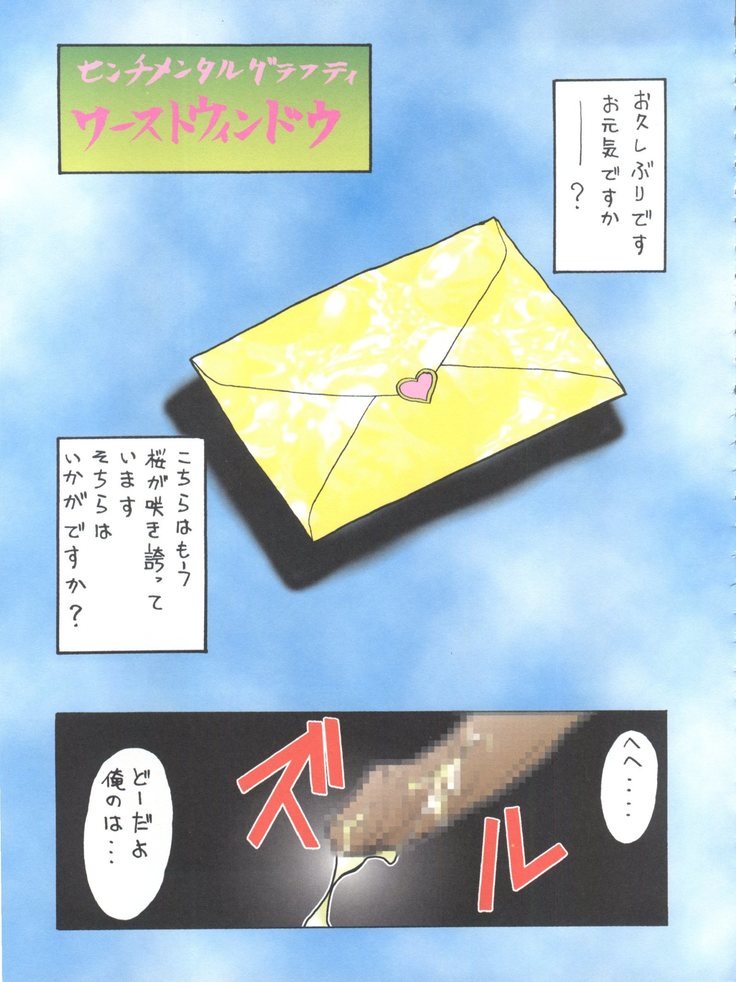 センチメンタルグラフティ
ワーストウィンドウ
お久しぶりです
お元気ですか
――?
こちらはもう
桜が咲き誇って
います
そちらは
いかがですか?
へへ・・・・・
ズルッ
どーだよ
俺のは・・・